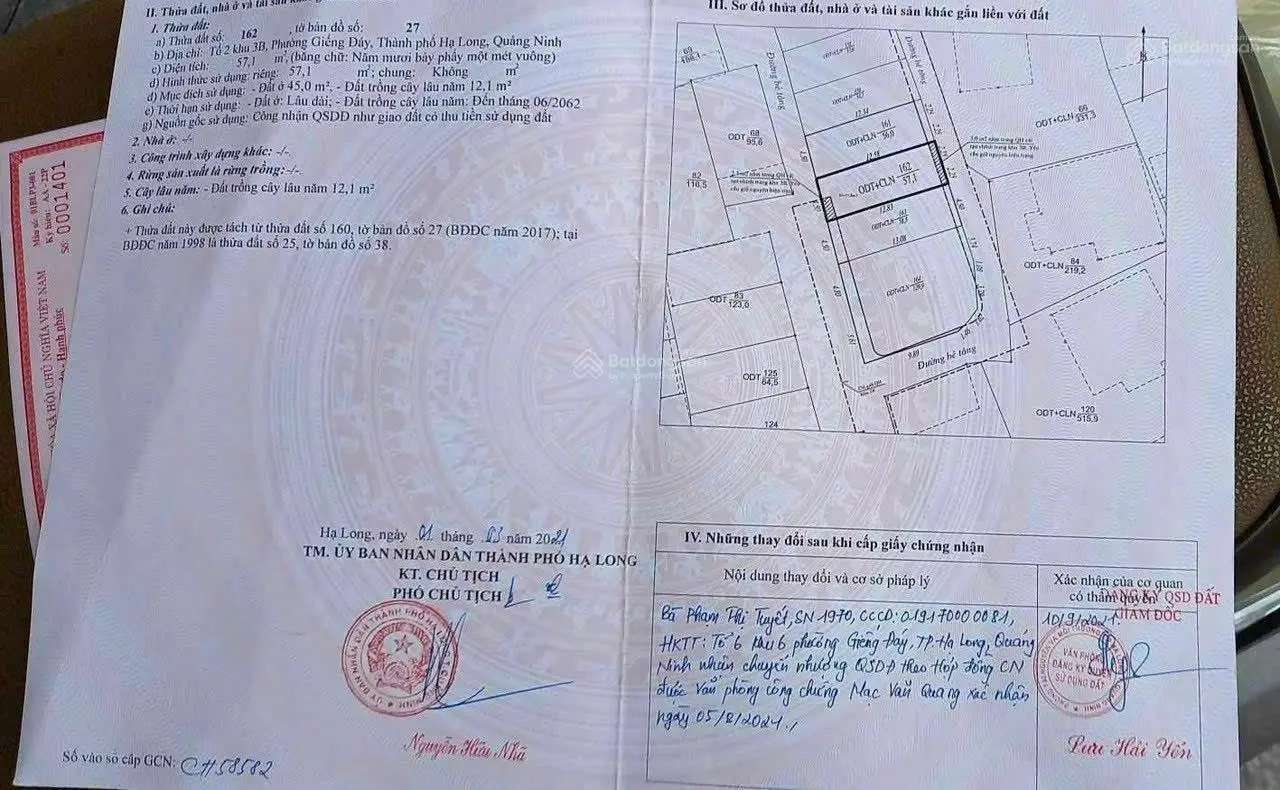 II. Thửa đất, nhà ở và tài sản khác
1. Thửa đất:
a) Thửa đất số: 162 , tờ bản đồ số: 27
b) Địa chỉ: Tổ 2 khu 3B, Phường Giếng Đáy, Thành phố Hạ Long, Quảng Ninh
c) Diện tích: 57,1 m², (bằng chữ: Năm mươi bảy phẩy một mét vuông)
d) Hình thức sử dụng: riêng: 57,1 m²; chung: Không m²
đ) Mục đích sử dụng: - Đất ở 45,0 m², - Đất trồng cây lâu năm 12,1 m²
e) Thời hạn sử dụng: - Đất ở: Lâu dài; - Đất trồng cây lâu năm: Đến tháng 06/2062
g) Nguồn gốc sử dụng: Công nhận QSDĐ như giao đất có thu tiền sử dụng đất
2. Nhà ở: -/-
3. Công trình xây dựng khác: -/-.
4. Rừng sản xuất là rừng trồng:-/-.
5. Cây lâu năm: - Đất trồng cây lâu năm 12,1 m²
6. Ghi chú:
+ Thửa đất này được tách từ thửa đất số 160, tờ bản đồ số 27 (BĐĐC năm 2017); tại
BĐĐC năm 1998 là thửa đất số 25, tờ bản đồ số 38.
Hạ Long, ngày 01 tháng 03 năm 2021
TM. ỦY BAN NHÂN DÂN THÀNH PHỐ HẠ LONG
KT. CHỦ TỊCH
PHÓ CHỦ TỊCH
Nguyễn Hữu Nhã
Số vào sổ cấp GCN: CH58582
Ký hiệu: AA - 22P
Số: 0001401
XÃ HỘI CHỦ NGHĨA VIỆT NAM
Hạnh phúc
III. Sơ đồ thửa đất, nhà ở và tài sản khác gắn liền với đất
Batdongsan
Đường bê tông
Đường bê tông
69
166,1
ODT 68 95,6
82
116,5
ODT+CLN 161 56,0
12.58
ODT+CLN 162 57,1
12.83
13.08
ODT+CLN 66 331,3
ODT+CLN 84 219,2
ODT 83 123,0
ODT 125 64,5
124
ODT+CLN 120 515,9
9.89
Đường bê tông
Batdongsan
IV. Những thay đổi sau khi cấp giấy chứng nhận
Nội dung thay đổi và cơ sở pháp lý
Xác nhận của cơ quan
có thẩm quyền
Bà Phạm Thị Tuyết, SN 1970, CCCD: 019170000081,
HKTT: Tổ 6 khu 6 phường Giếng Đáy, TP. Hạ Long, Quảng
Ninh nhận chuyển nhượng QSDĐ theo Hợp đồng CN
được Văn phòng công chứng Mạc Văn Quang xác nhận
ngày 05/8/2021./
ĐĂNG KÝ QSD ĐẤT
GIÁM ĐỐC
10/9/2021
VĂN PHÒNG
ĐĂNG KÝ QUYỀN
SỬ DỤNG ĐẤT
Lưu Hải Yến